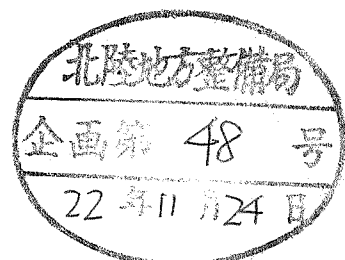 北陸地方整備局
企画第 48 号
22 年 11 月 24 日